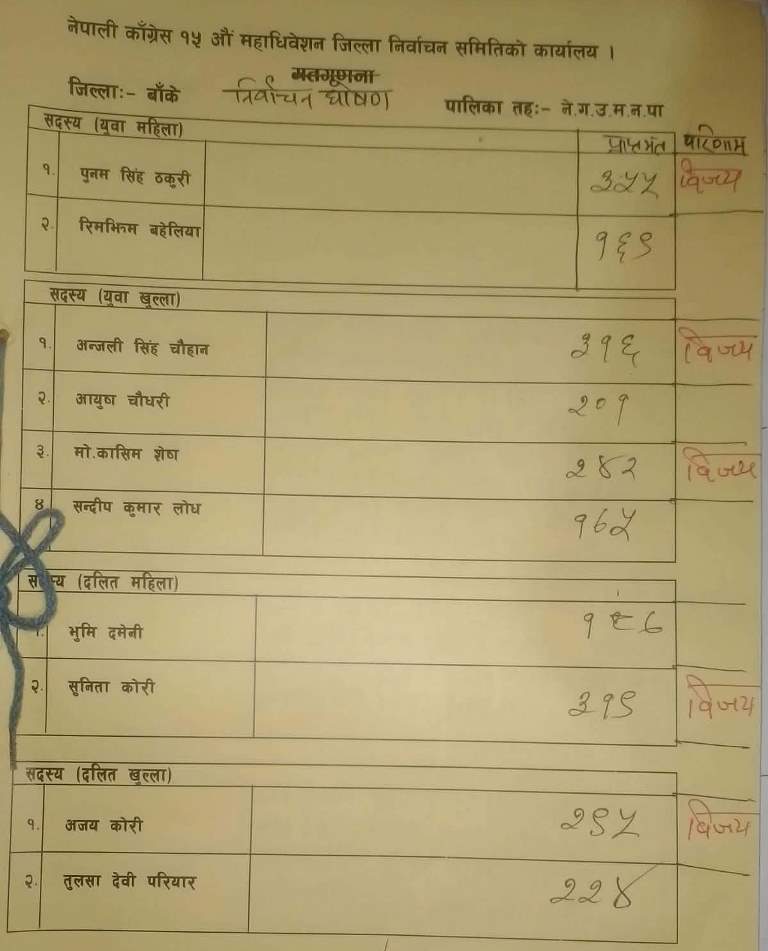 नेपाली काँग्रेस १५ औं महाधिवेशन जिल्ला निर्वाचन समितिको कार्यालय ।
मतगणना
जिल्लाः- बाँके निर्वाचन घोषणा पालिका तहः- ने.ग.उ.म.न.पा
सदस्य (युवा महिला) प्राप्तमत परिणाम
१. पुनम सिंह ठकुरी ३५५ विजय
२. रिमझिम बहेलिया १६९
सदस्य (युवा खुल्ला)
१. अन्जली सिंह चौहान ३१६ विजय
२. आयुष चौधरी २०१
३. मो.कासिम शेष २४२ विजय
४ सन्दीप कुमार लोध १७५
सदस्य (दलित महिला)
१. भुमि दमेनी १८७
२. सुनिता कोरी ३१९ विजय
सदस्य (दलित खुल्ला)
१. अजय कोरी २९५ विजय
२. तुलसा देवी परियार २२४